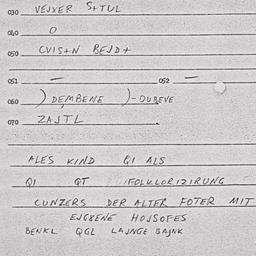 030 VEJXER S+TUL
040 O
050 CVIS+N BEJD+
051 — 052 —
060 ) DEMBENE )-DUBEVE
070 ZAJTL
ALES KIND QI ALS
QI QT FOLKLORIZIRUNG
CUNZERS DER ALTER FOTER MIT
EJGXENE HOJSOFES
BENKL QGL LAJNGE BAJNK